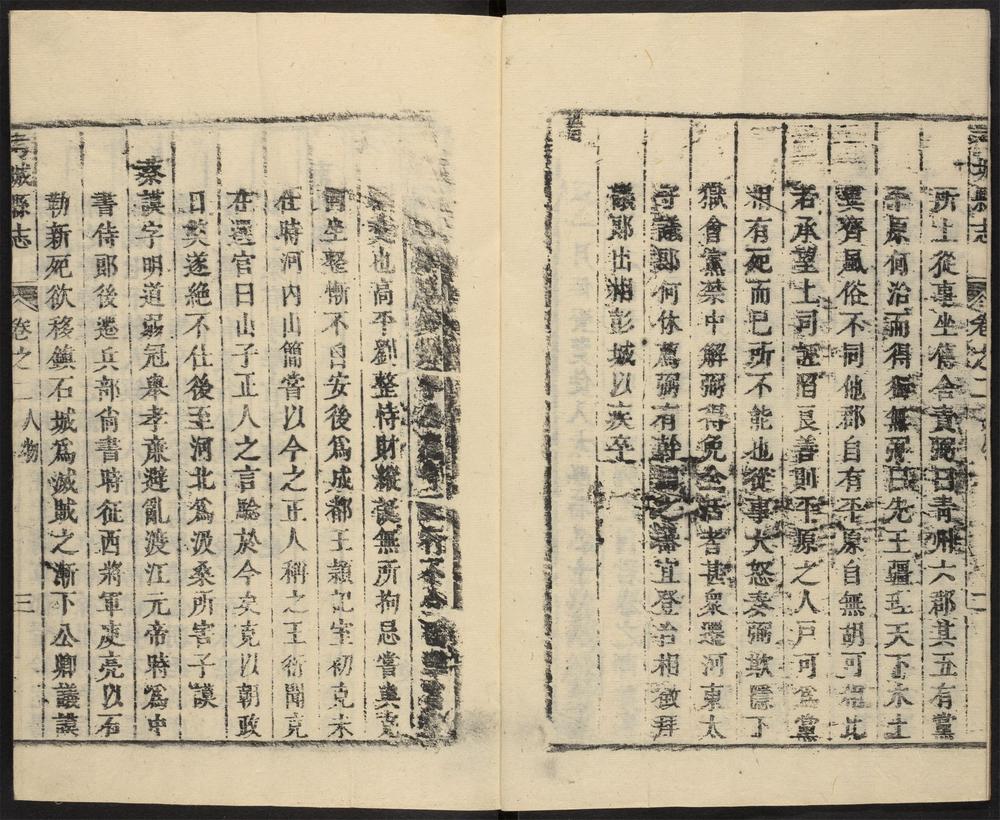 考城縣志
卷之二
二
所上從事坐傳舍責弼曰青州六郡其五有黨
平原何治而得獨無弼曰先王疆理天下水土
異齊風俗不同他郡自有平原自無胡可相比
若承望上司誣陷良善則平原之人戶可爲黨
相有死而已所不能也從事大怒奏弼欺隱下
獄會黨禁中解弼得免全活者甚衆遷河東太
守議郎何休薦弼有幹國之器宜登台相徵拜
議郎出爲彭城以疾卒
也高平劉整恃財縱誕無所拘忌嘗與克
同坐整慚不自安後爲成都王穎記室初克未
仕時河内山簡嘗以今之正人稱之王衍聞克
在選官曰山子正人之言驗於今矣克以朝政
日奕遂絕不仕後至河北爲汲桑所害子謨
蔡謨字明道弱冠舉孝亷避亂渡江元帝時爲中
書侍郎後遷兵部尚書時征西將軍庾亮以石
勒新死欲移鎮石城爲滅賊之漸下公卿議謨
考城縣志
卷之二
人物
三